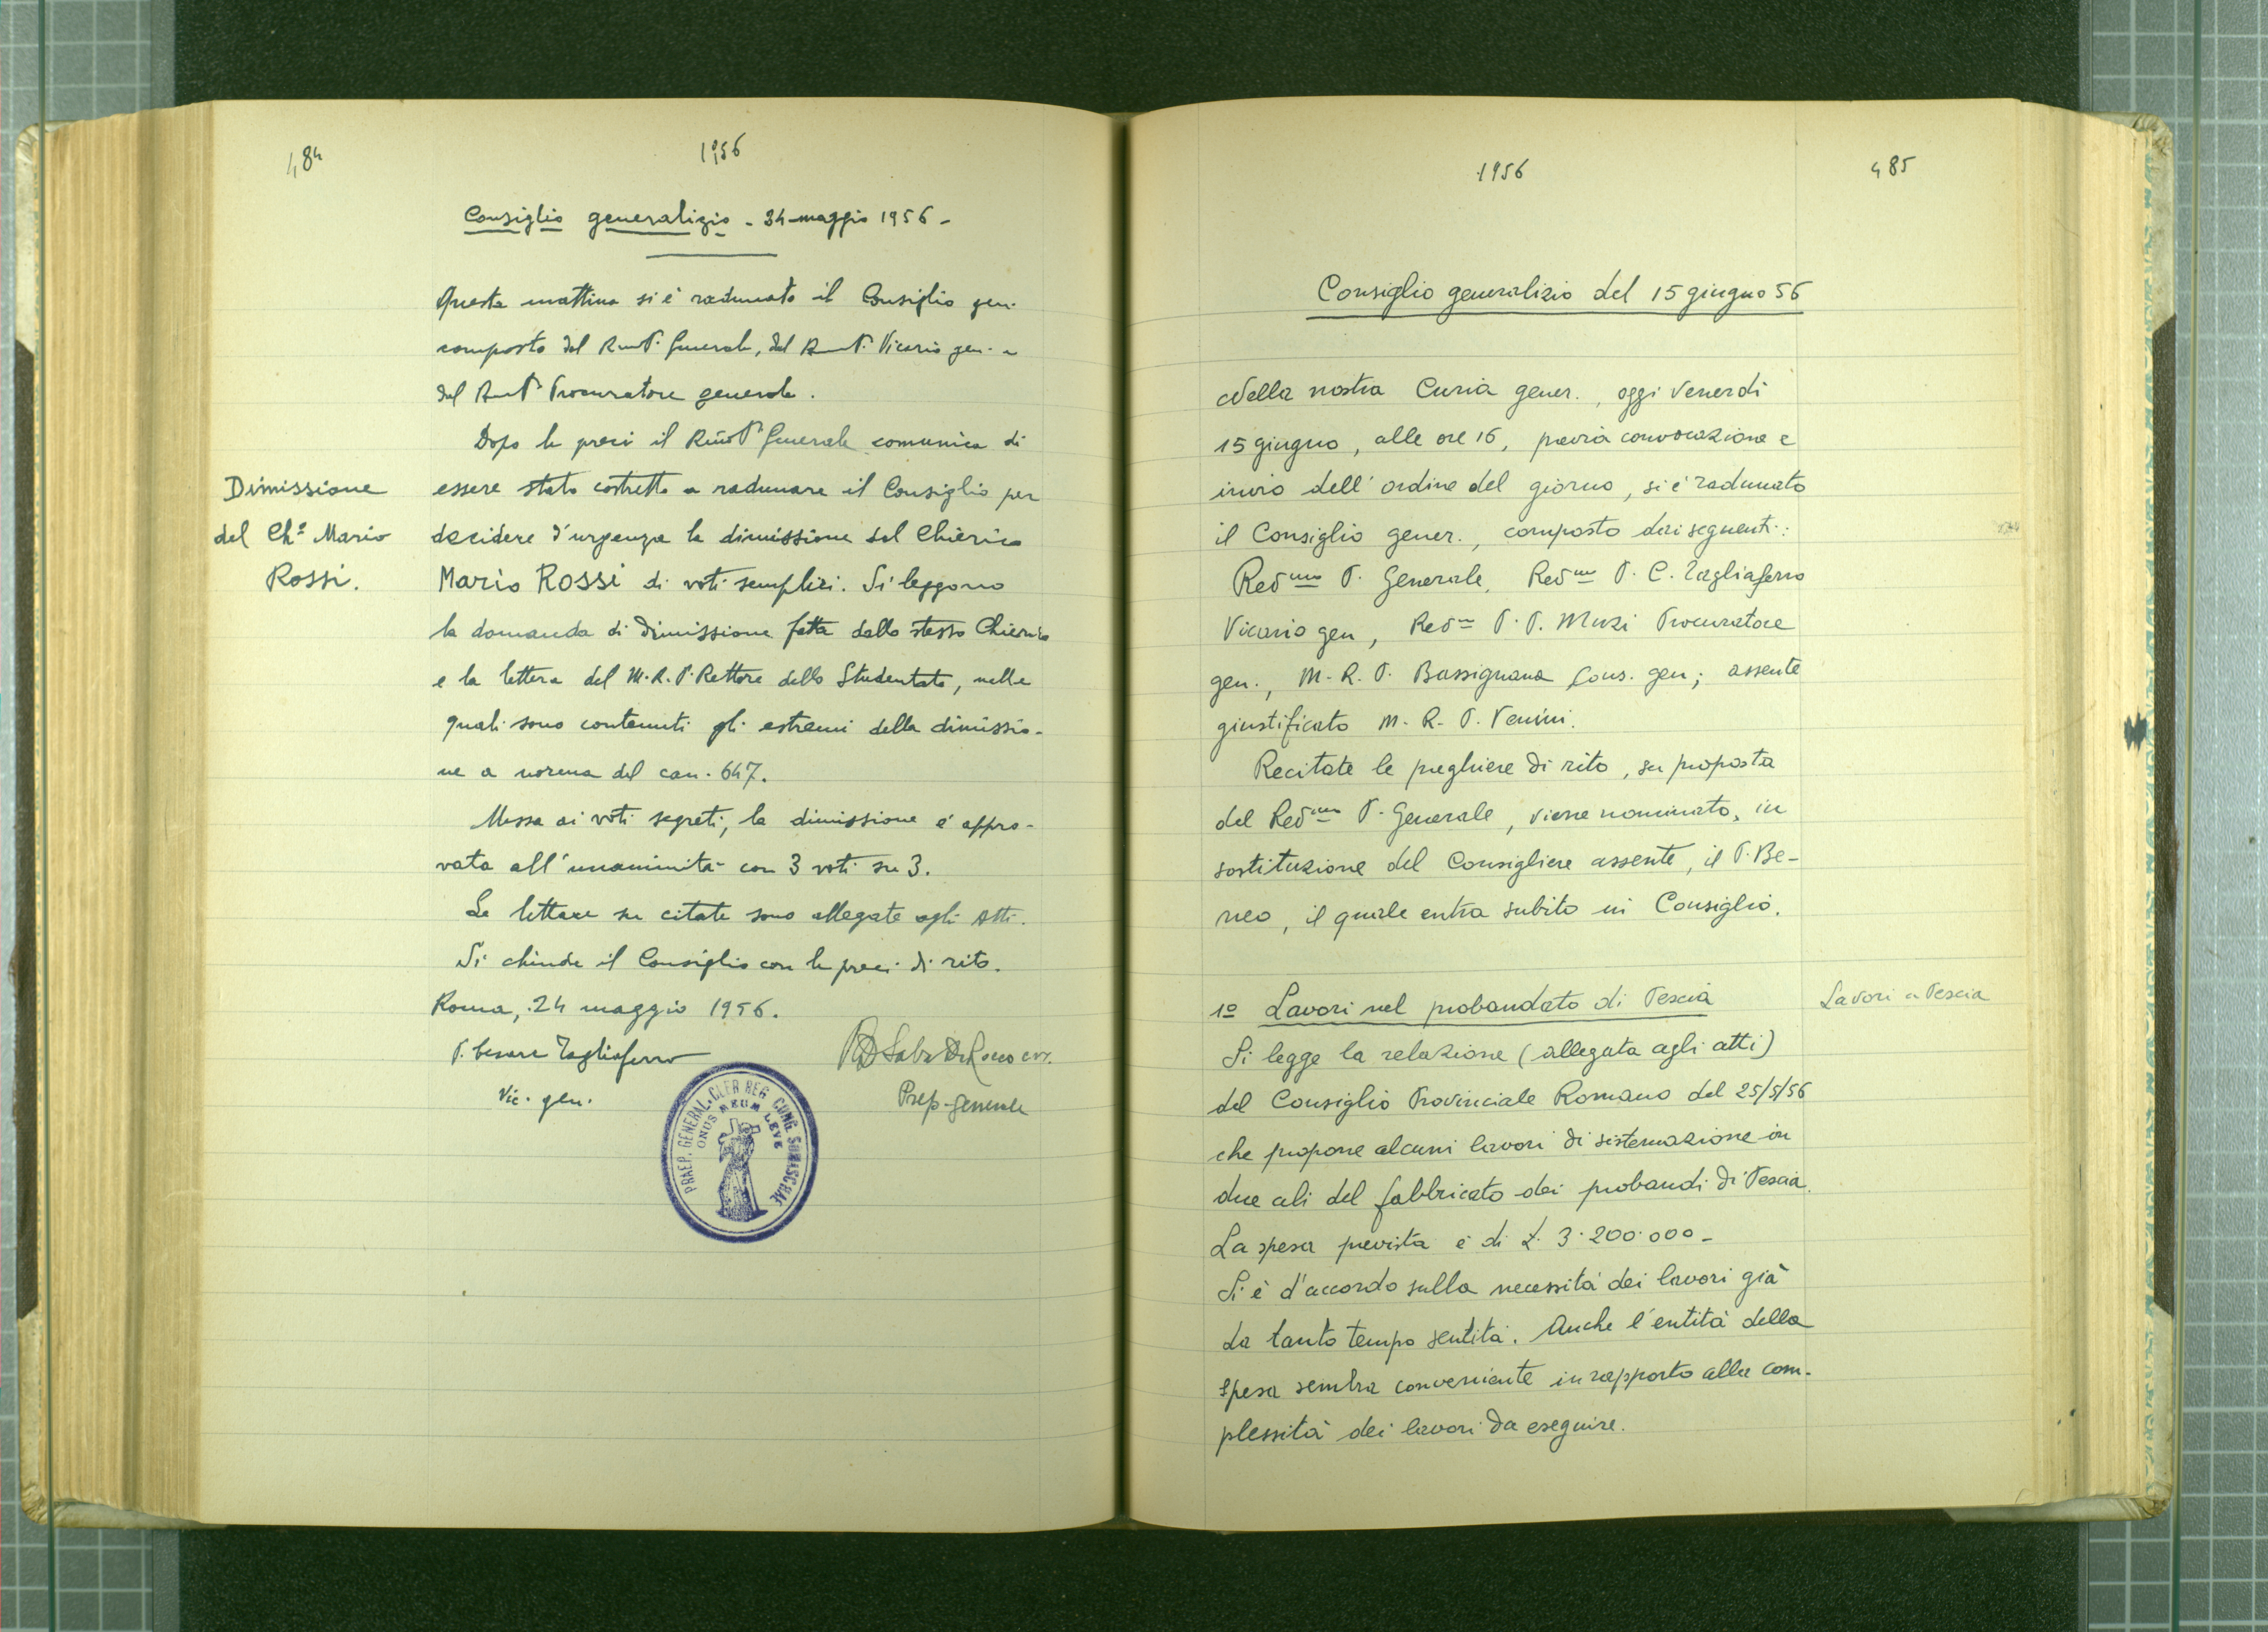 484
1956
Consiglio generalizio - 24 maggio 1956 -
Questa mattina si è radunato il Consiglio gen.
composto dal RmoP. Generale, dal RmoP. Vicario gen. e
dal RmoP. Procuratore generale.
Dopo le preci il RmoP. Generale comunica di
essere stato costretto a radunare il Consiglio per
decidere d'urgenza la dimissione del Chierico
Mario ROSSI di voti semplici. Si leggono
la domanda di dimissione fatta dallo stesso Chierico
e la lettera del M.R.P. Rettore dello Studentato, nelle
quali sono contenuti gli estremi della dimissio-
ne a norma del can. 647.
Messa ai voti segreti, la dimissione è appro-
vata all'unanimità con 3 voti su 3.
Le lettere su citate sono allegate agli Atti.
Si chiude il Consiglio con le preci di rito.
Roma, 24 maggio 1956.
P. Cesare Tagliaferro
Vic. gen.
Prep. generale
Dimissione
del Ch.º Mario
Rossi.
PRAEP. GENERAL. CLER REG. CONG. SOMASCHAE
ONUS MEUM LEVE
1956
485
Consiglio generalizio del 15 giugno 56
Nella nostra Curia gener., oggi Venerdì
15 giugno, alle ore 16, previa convocazione e
invio dell'ordine del giorno, si è radunato
il Consiglio gener., composto dai seguenti:
Revmo P. Generale, Revmo P. C. Tagliaferro
Vicario gen, Revmo P. P. Muzi Procuratore
gen., M. R. P. Bassignana Cons. gen; assente
giustificato M. R. P. Venini.
Recitate le preghiere di rito, su proposta
del Revmo P. Generale, viene nominato, in
sostituzione del Consigliere assente, il P. Be-
neo, il quale entra subito in Consiglio.
1º Lavori nel probandato di Pescia
Si legge la relazione (allegata agli atti)
del Consiglio Provinciale Romano del 25/5/56
che propone alcuni lavori di sistemazione in
due ali del fabbricato dei probandi di Pescia.
La spesa prevista è di £. 3.200.000 -
Si è d'accordo sulla necessità dei lavori già
da tanto tempo sentita. Anche l'entità della
spesa sembra conveniente in rapporto alla com-
plessità dei lavori da eseguire.
Lavori a Pescia